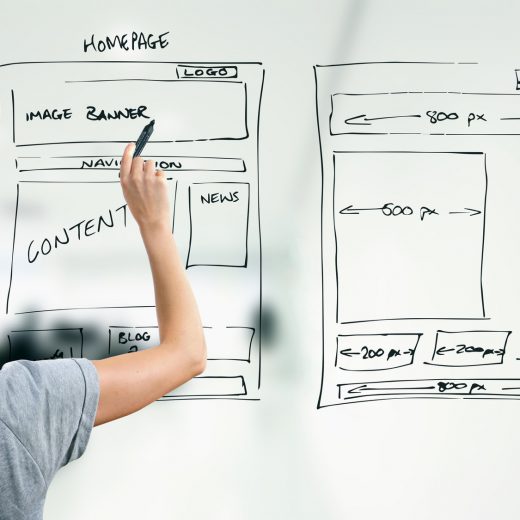 HOMEPAGE
LOGO
IMAGE BANNER
NAVIGATION
CONTENT
NEWS
BLOG
800 px
600 px
200 px
200 px
800 px